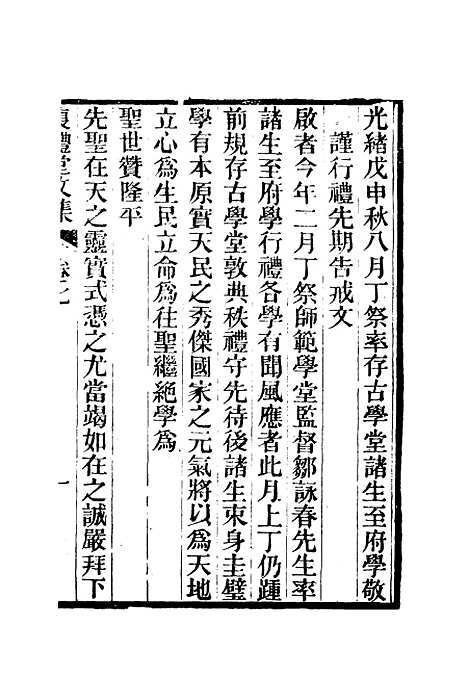 光緒戊申秋八月丁祭率存古學堂諸生至府學敬
謹行禮先期告戒文
啟者今年二月丁祭師範學堂監督鄒詠春先生率
諸生至府學行禮各學有聞風應者此月上丁仍踵
前規存古學堂敦典秩禮守先待後諸生束身圭璧
學有本原實天民之秀傑國家之元氣將以為天地
立心為生民立命為往聖繼絕學為
聖世贊隆平
先聖在天之靈實式憑之尤當竭如在之誠嚴拜下
復禮堂文集
一